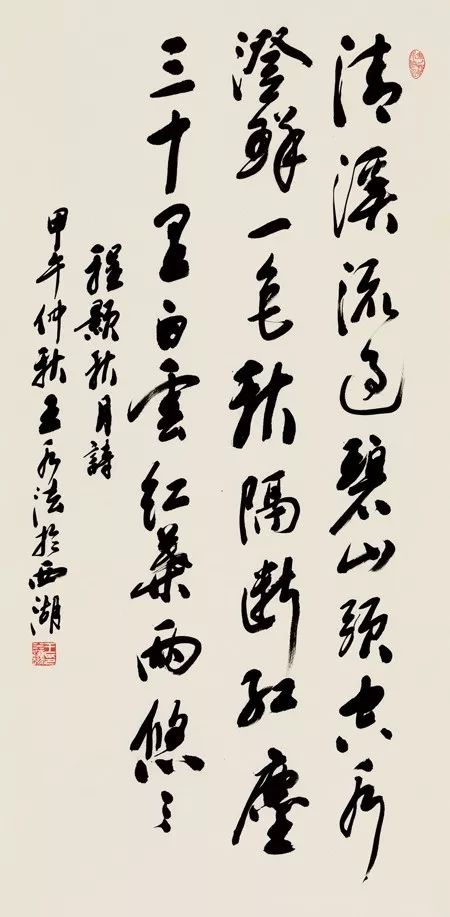 清溪流過碧山頭空水
澄鮮一色秋隔斷紅塵
三十里白雲紅葉兩悠々
程顥秋月詩
甲午仲秋王水法於西湖